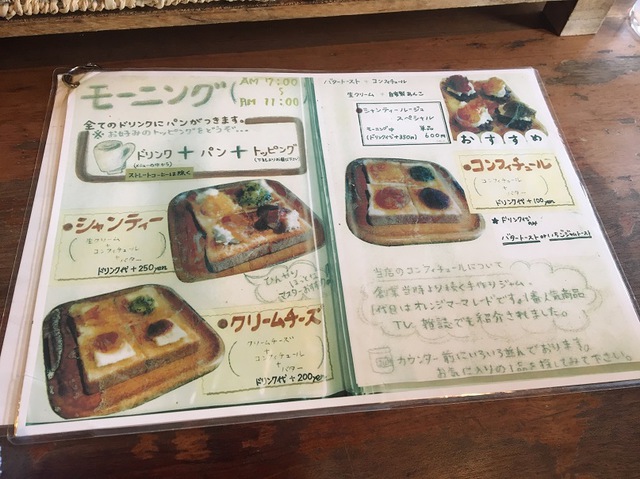 モーニング
AM 7:00
〜
AM 11:00
全てのドリンクにパンがつきます。
※お好みのトッピングをどうぞ…
ドリンク + パン + トッピング
ストレートコーヒーは除く
シャンティー
生クリーム
+
コンフィチュール
+
バター
ドリンク代+250yen
クリームチーズ
クリームチーズ
+
コンフィチュール
+
バター
ドリンク代+200yen
バタートースト + コンフィチュール
生クリーム + 自家製あんこ
シャンティールージュ
スペシャル
モーニング 単品
(ドリンク代+350円) 600円
おすすめ
コンフィチュール
コンフィチュール
+
バター
ドリンク代+100yen
★ドリンク代のみ
バタートースト or いちごジャムトースト
当店のコンフィチュールについて
創業当時より続く手作りジャム。
1代目はオレンジマーマレードです。1番人気商品
TV、雑誌でも紹介されました。
カウンター前にいろいろ並んでおります。
お気に入りの1品を探してみて下さい。